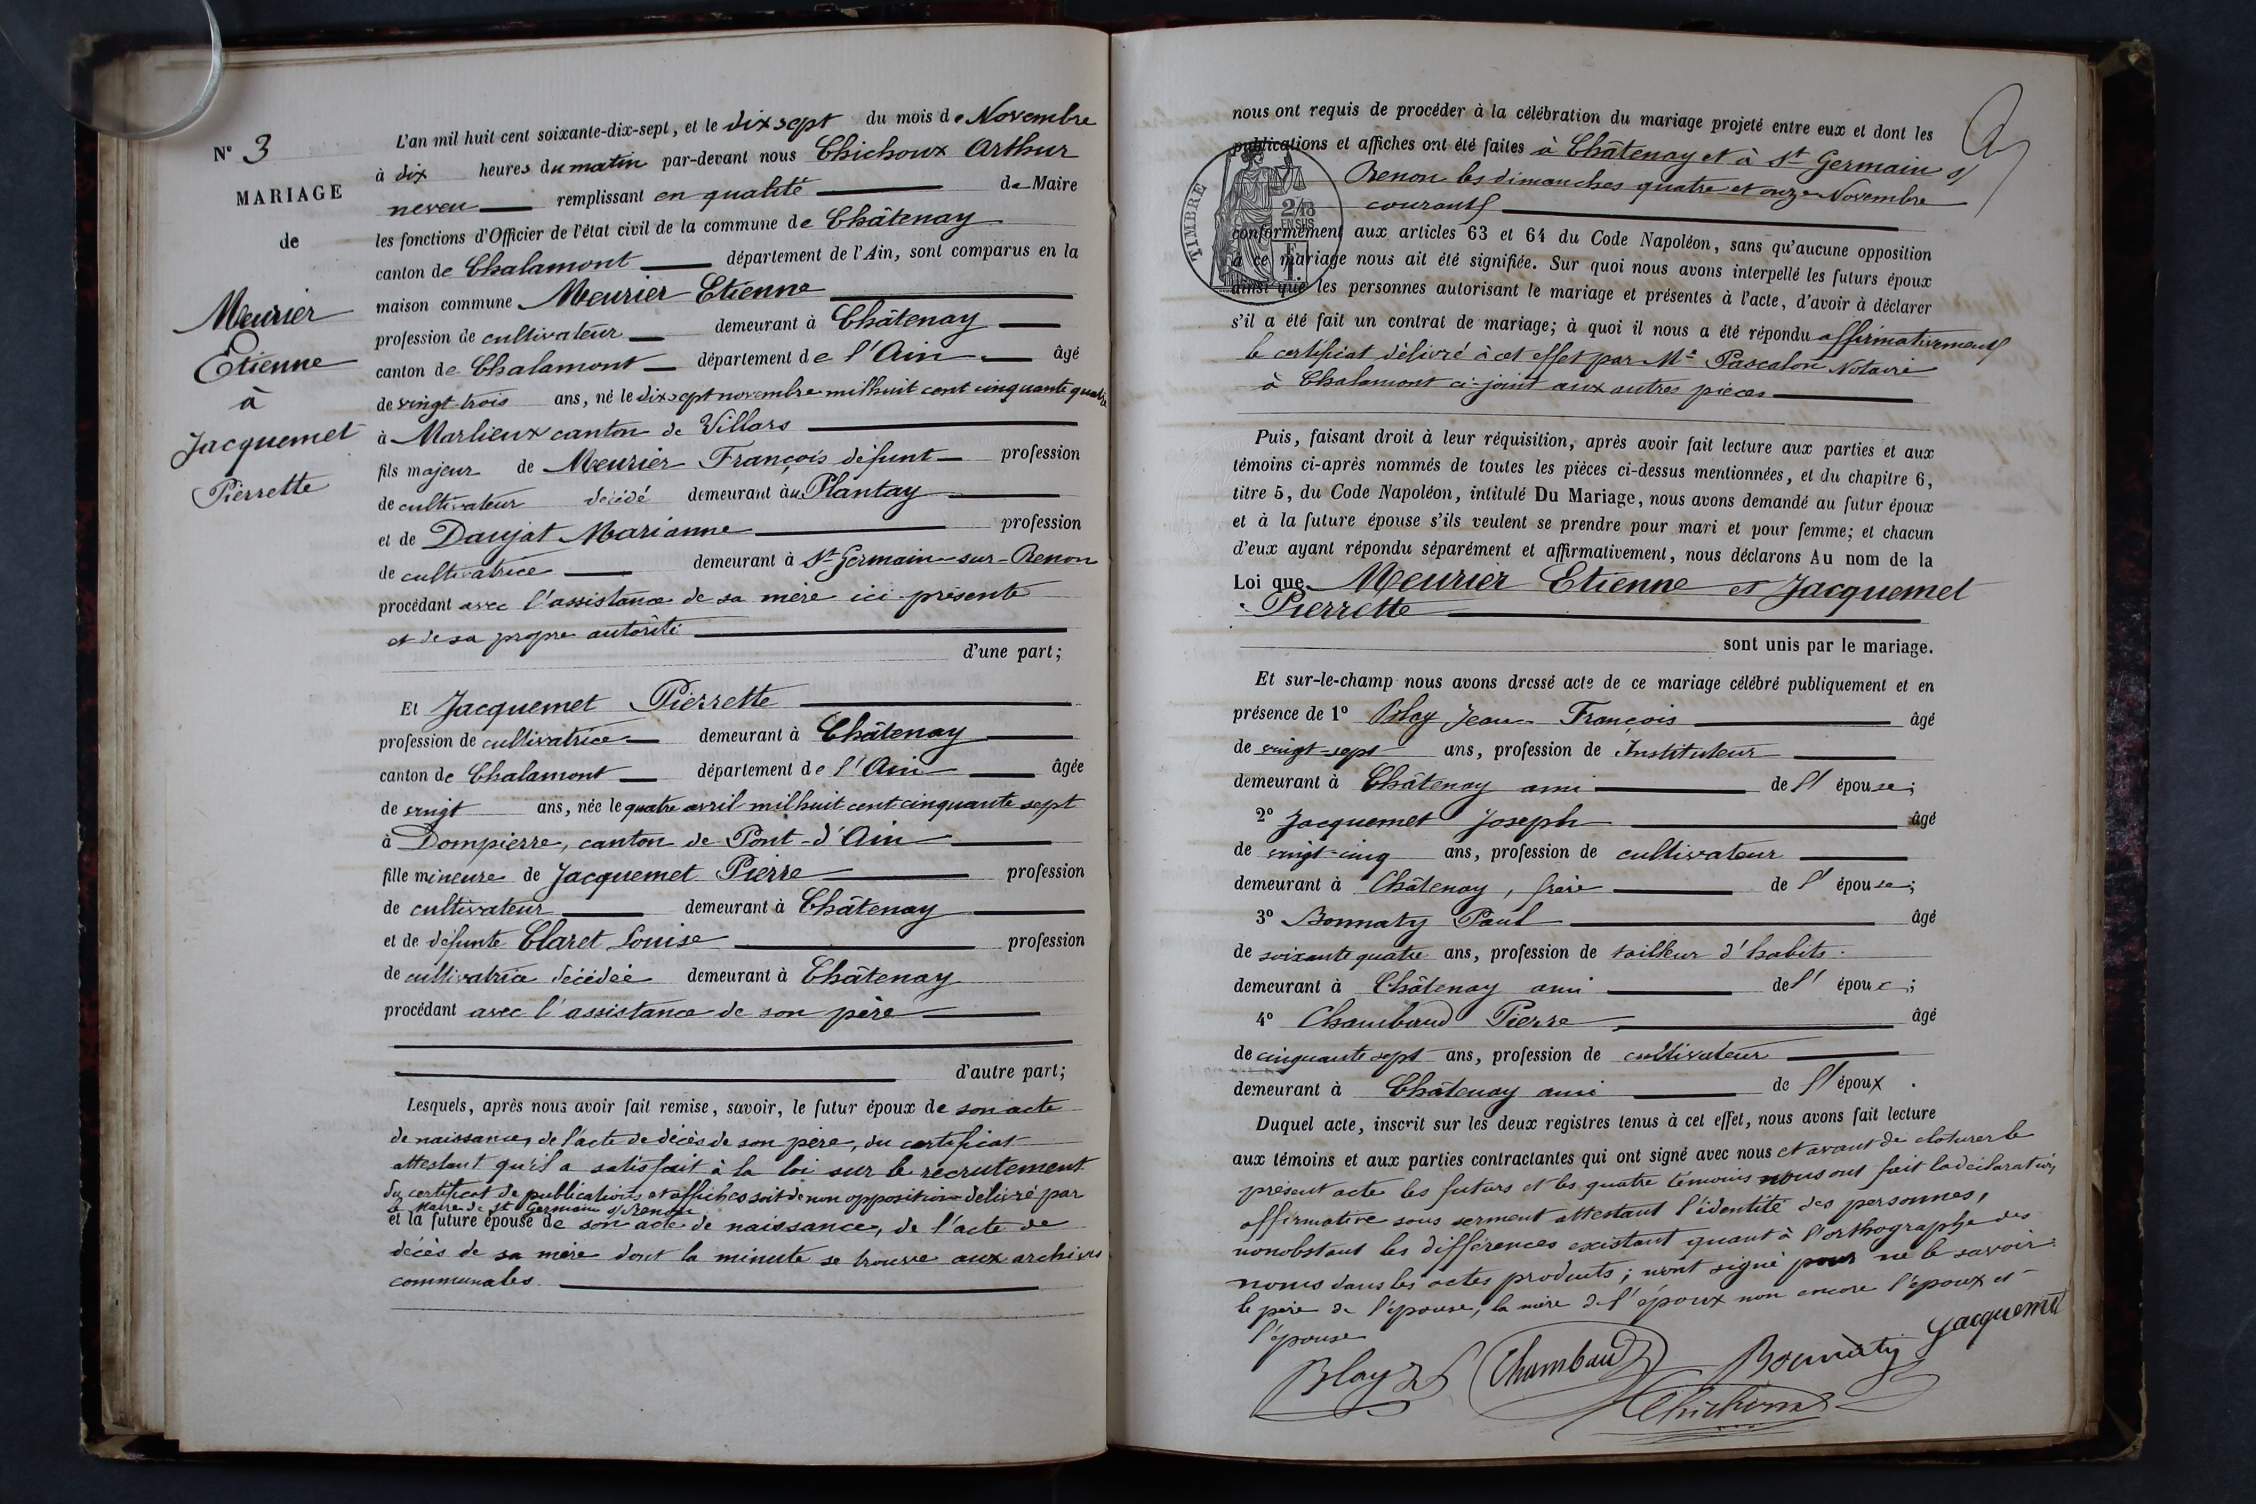 N° 3
MARIAGE
de
Meurier
Etienne
à
Jacquemet
Pierrette
L'an mil huit cent soixante-dix-sept, et le dix sept du mois de Novembre
à dix heures du matin par-devant nous Chichoux Arthur
neveu remplissant en qualité de Maire
les fonctions d'Officier de l'état civil de la commune de Châtenay
canton de Chalamont département de l'Ain, sont comparus en la
maison commune Meurier Etienne
profession de cultivateur demeurant à Châtenay
canton de Chalamont département de l'Ain âgé
de vingt-trois ans, né le dix sept novembre mil huit cent cinquante quatre
à Marlieux canton de Villars
fils majeur de Meurier François défunt profession
de cultivateur décédé demeurant au Plantay
et de Daujat Marianne profession
de cultivatrice demeurant à St Germain-sur-Renon
procédant avec l'assistance de sa mère ici présente
et de sa propre autorité
d'une part;
Et Jacquemet Pierrette
profession de cultivatrice demeurant à Châtenay
canton de Chalamont département de l'Ain âgée
de vingt ans, née le quatre avril mil huit cent cinquante sept
à Dompierre, canton de Pont-d'Ain
fille mineure de Jacquemet Pierre profession
de cultivateur demeurant à Châtenay
et de défunte Claret Louise profession
de cultivatrice décédée demeurant à Châtenay
procédant avec l'assistance de son père
d'autre part;
Lesquels, après nous avoir fait remise, savoir, le futur époux de son acte
de naissance, de l'acte de décès de son père, du certificat
attestant qu'il a satisfait à la loi sur le recrutement
du certificat de publications et affiches soit de non opposition délivré par
le Maire de St Germain s/ Renon
et la future épouse de son acte de naissance, de l'acte de
décès de sa mère dont la minute se trouve aux archives
communales.
nous ont requis de procéder à la célébration du mariage projeté entre eux et dont les
publications et affiches ont été faites à Châtenay et à St Germain s/
Renon les dimanches quatre et onze Novembre
courant
TIMBRE
2/10
EN SUS
conformément aux articles 63 et 64 du Code Napoléon, sans qu'aucune opposition
à ce mariage nous ait été signifiée. Sur quoi nous avons interpellé les futurs époux
ainsi que les personnes autorisant le mariage et présentes à l'acte, d'avoir à déclarer
s'il a été fait un contrat de mariage; à quoi il nous a été répondu affirmativement
le certificat délivré à cet effet par Me Pascalon Notaire
à Chalamont ci-joint aux autres pièces
Puis, faisant droit à leur réquisition, après avoir fait lecture aux parties et aux
témoins ci-après nommés de toutes les pièces ci-dessus mentionnées, et du chapitre 6,
titre 5, du Code Napoléon, intitulé Du Mariage, nous avons demandé au futur époux
et à la future épouse s'ils veulent se prendre pour mari et pour femme; et chacun
d'eux ayant répondu séparément et affirmativement, nous déclarons Au nom de la
Loi que Meurier Etienne et Jacquemet
Pierrette
sont unis par le mariage.
Et sur-le-champ nous avons dressé acte de ce mariage célébré publiquement et en
présence de 1° Blay Jean François âgé
de vingt-sept ans, profession de Instituteur
demeurant à Châtenay ami de l' épouse;
2° Jacquemet Joseph âgé
de vingt-cinq ans, profession de cultivateur
demeurant à Châtenay, frère de l' épouse;
3° Bonnaty Paul âgé
de soixante quatre ans, profession de tailleur d'habits.
demeurant à Châtenay ami de l' épouse;
4° Chambaud Pierre âgé
de cinquante sept ans, profession de cultivateur
demeurant à Châtenay ami de l' époux.
Duquel acte, inscrit sur les deux registres tenus à cet effet, nous avons fait lecture
aux témoins et aux parties contractantes qui ont signé avec nous et avant de cloturer le
présent acte les futurs et les quatre témoins nous ont fait la déclaration
affirmative sous serment attestant l'identité des personnes,
nonobstant les différences existant quant à l'orthographe des
noms dans les actes produits; n'ont signé pour ne le savoir
le père de l'épouse, la mère de l'époux non encore l'époux et
l'épouse
Blay Chambaud Bonnaty Jacquemet
Chichoux